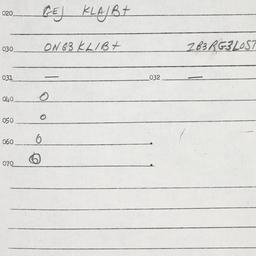 020 GEJ KLA/B+
030 ONG3 KL/B+ 2B3RG3LOST
031 — 032 —
040 0
050 0
060 0
070